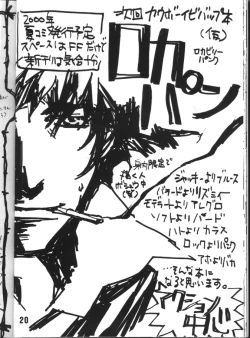 次回 カウボーイビバップ本
(仮)
ロカパン
ロカビリー
パンク
2000年
夏コミ発行予定
スペースはFFだけど
新刊は気合十分
ジャッキーよりブルース
バラードよりリズミィー
モデラートよりアレグロ
ソフトよりハード
ハトよりカラス
ロックよりパンク
アホよりバカ
…そんな本に
なると思います。
アクション
中心
20